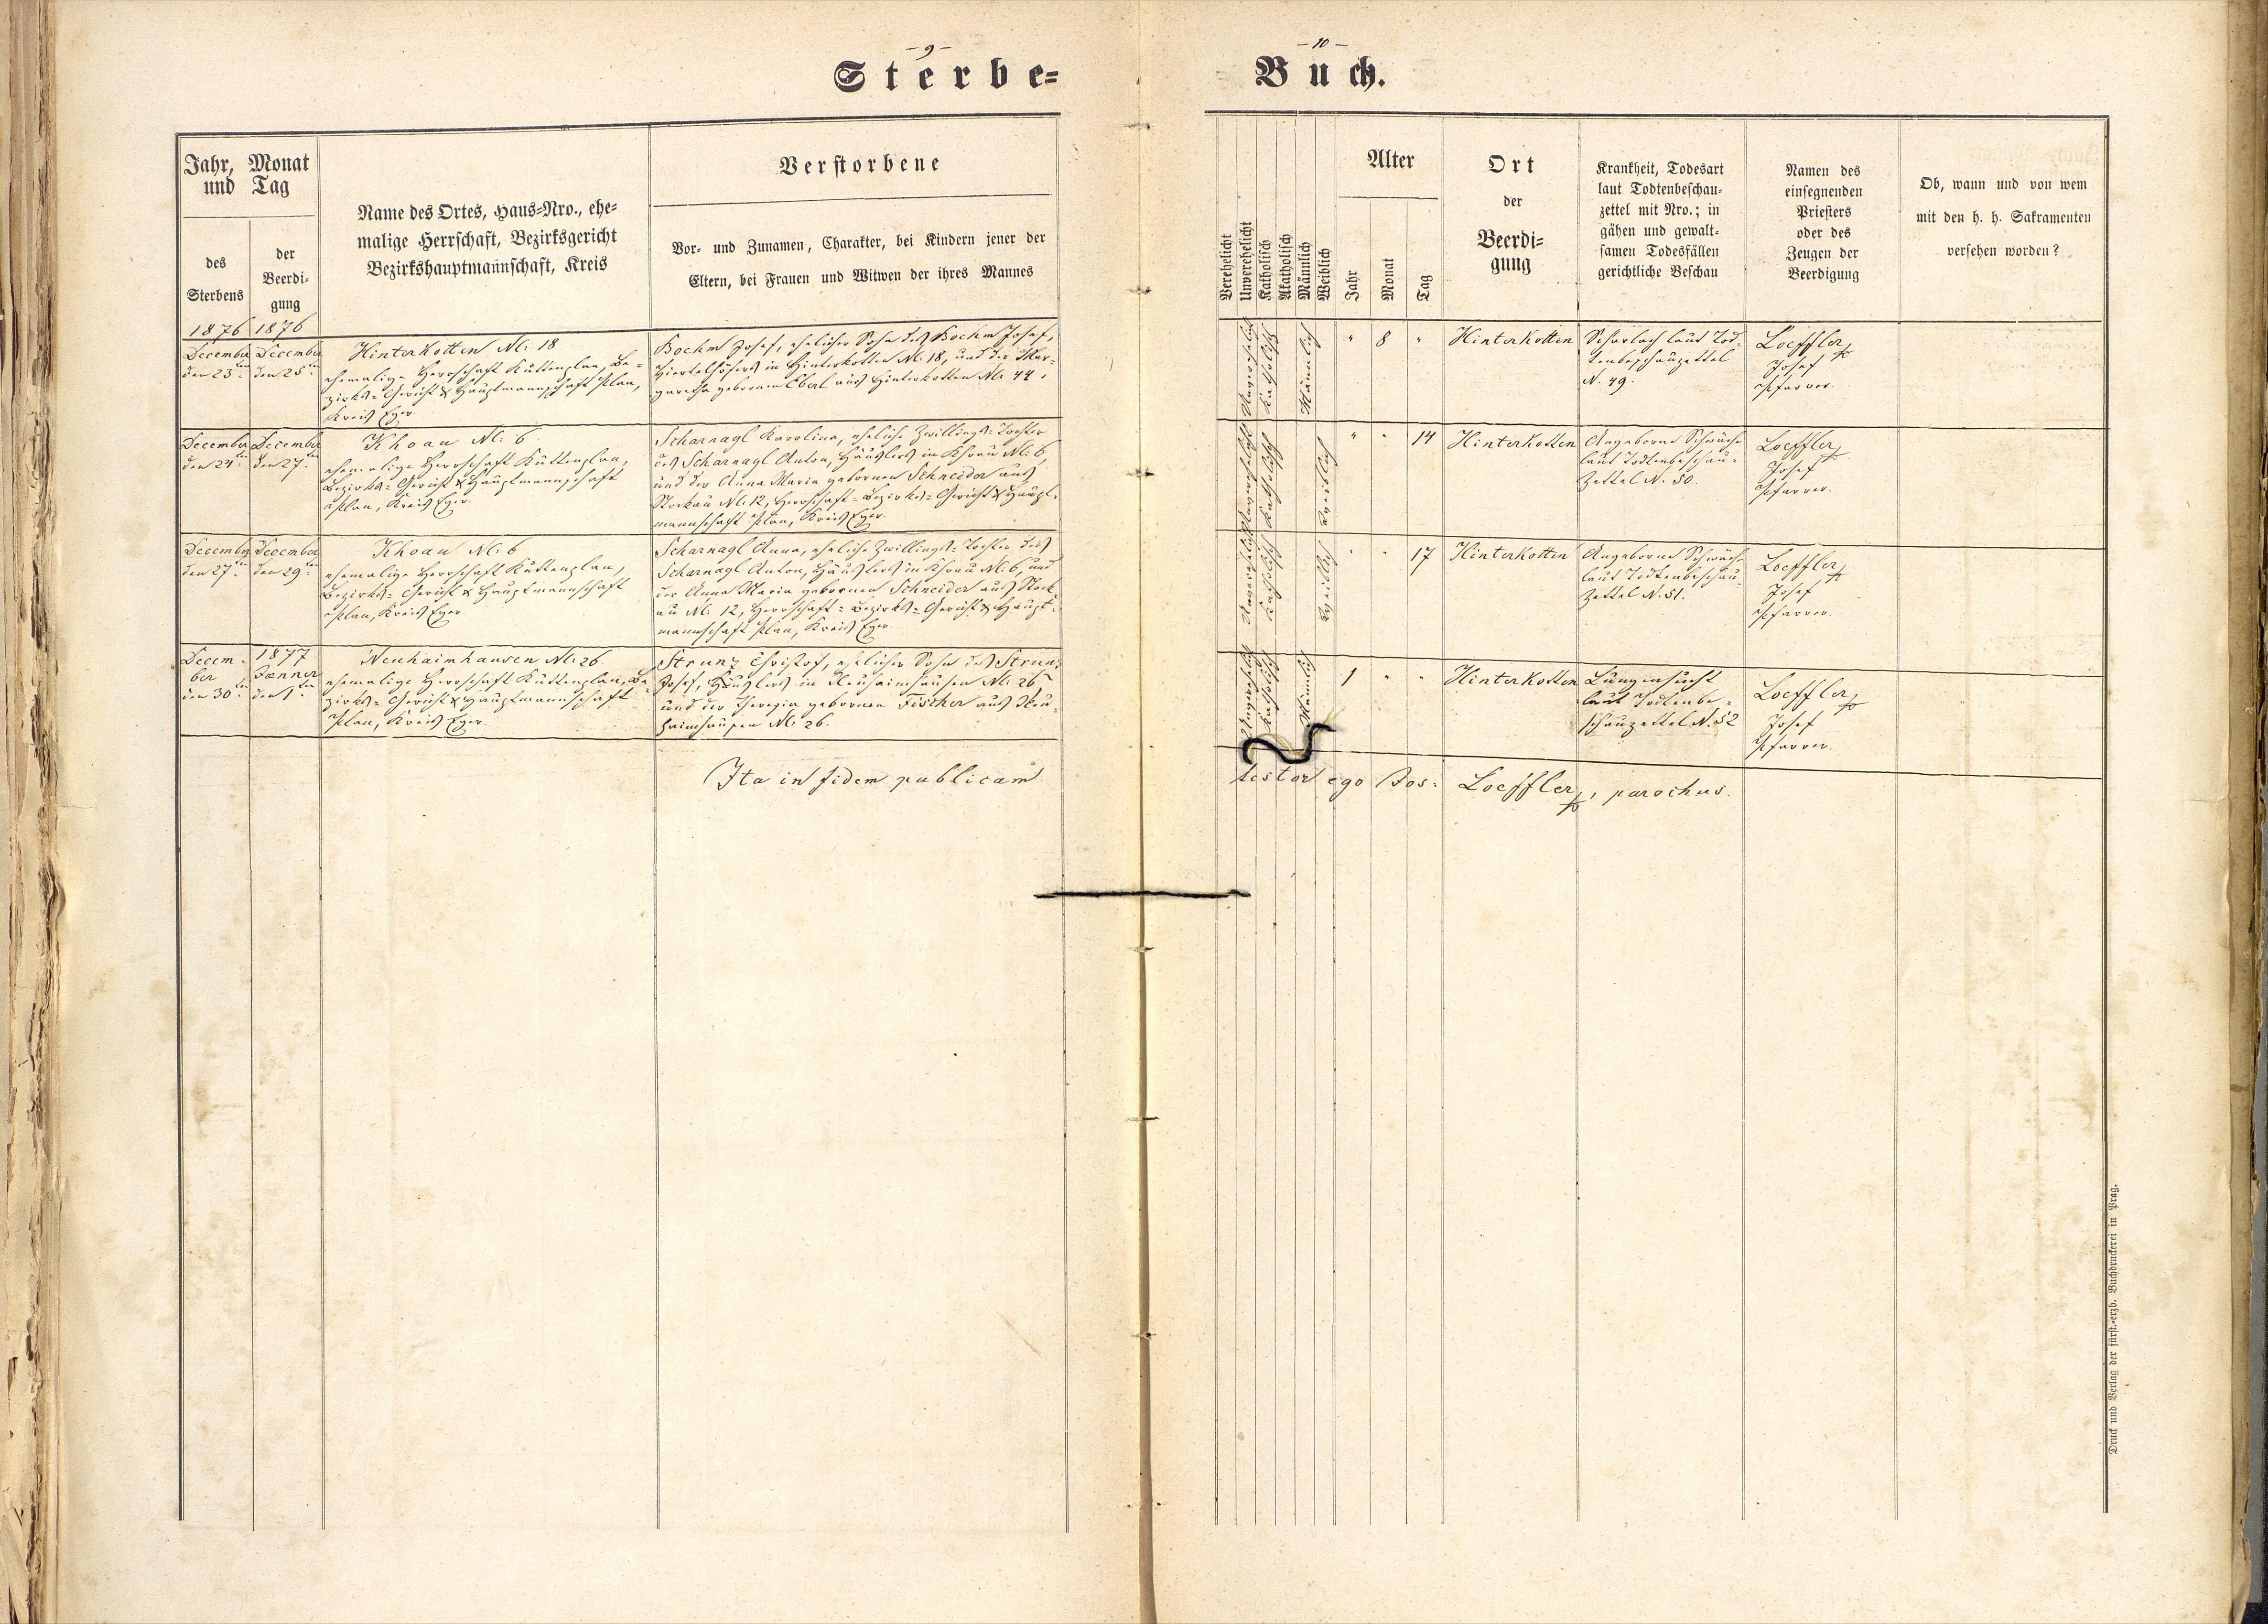 - 9 -
Sterbe=
Jahr, Monat
und Tag
des
Sterbens
der
Beerdi-
gung
Name des Ortes, Haus=Nro., ehe=
malige Herrschaft, Bezirksgericht
Bezirkshauptmannschaft, Kreis
Verstorbene
Vor- und Zunamen, Charakter, bei Kindern jener der
Eltern, bei Frauen und Witwen der ihres Mannes
1876 1876
December
den 23ten
December
den 25ten
Hinterkotten N: 18
ehemalige Herrschaft Kuttenplan, Be=
zirks=Gericht & Hauptmannschaft Plan,
Kreis Eger.
Boehm Josef, ehelicher Sohn des Boehm Josef,
Viertelhöfers in Hinterkotten N: 18, und der Mar=
garetha gebornen Eberl aus Hinterkotten N: 44.
December
den 24ten
December
den 27ten
Khoau N: 6
ehemalige Herrschaft Kuttenplan,
Bezirks=Gericht & Hauptmannschaft
Plan, Kreis Eger.
Scharnagl Karolina, eheliche Zwillings=Tochter
des Scharnagl Anton, Häuslers in Khoau N: 6,
und der Anna Maria gebornen Schneider aus
Stockau N: 12, Herrschaft=Bezirks=Gericht & Haupt=
mannschaft Plan, Kreis Eger.
December
den 27ten
December
den 29ten
Khoau N: 6
ehemalige Herrschaft Kuttenplan,
Bezirks=Gericht & Hauptmannschaft
Plan, Kreis Eger.
Scharnagl Anna, eheliche Zwillings=Tochter des
Scharnagl Anton, Häuslers in Khoau N: 6, und
der Anna Maria gebornen Schneider aus Stock=
au N: 12, Herrschaft=Bezirks=Gericht & Haupt=
mannschaft Plan, Kreis Eger.
Decem=
ber
den 30ten
1877
Jänner
den 1ten
Neuhaimhausen N: 26
ehemalige Herrschaft Kuttenplan, Be=
zirks=Gericht & Hauptmannschaft
Plan, Kreis Eger.
Strunz Christof, ehelicher Sohn des Strunz
Josef, Häuslers in Neuhaimhausen N: 26
und der Theresia gebornen Fischer aus Neu=
haimhausen N: 26.
Ita in fidem publicam
- 10 -
Buch.
Verehelicht
Unverehelicht
Katholisch
Akatholisch
Männlich
Weiblich
Alter
Jahr
Monat
Tag
Ort
der
Beerdi=
gung
Krankheit, Todesart
laut Todtenbeschau=
zettel mit Nro.; in
gähen und gewalt=
samen Todesfällen
gerichtliche Beschau
Namen des
einsegnenden
Priesters
oder des
Zeugen der
Beerdigung
Ob, wann und von wem
mit den h. h. Sakramenten
versehen worden?
Unverehelicht
Katholisch
Männlich
" 8 "
Hinterkotten
Scharlach laut Tod=
tenbeschauzettel
N. 49.
Loeffler
Josef
Pfarrer.
Unverehelicht
Katholisch
Weiblich
" " 14
Hinterkotten
Angeborne Schwäche
laut Todtenbeschau=
zettel N. 50.
Loeffler
Josef
Pfarrer.
Unverehelicht
Katholisch
Weiblich
" " 17
Hinterkotten
Angeborne Schwäche
laut Todtenbeschau=
zettel N. 51.
Loeffler
Josef
Pfarrer.
Unverehelicht
Katholisch
Männlich
1 " "
Hinterkotten
Lungensucht
laut Todtenbe=
schauzettel N. 52
Loeffler
Josef
Pfarrer.
testor ego Jos: Loeffler, parochus.
Druck und Verlag der fürst.=erzb. Buchdruckerei in Prag.